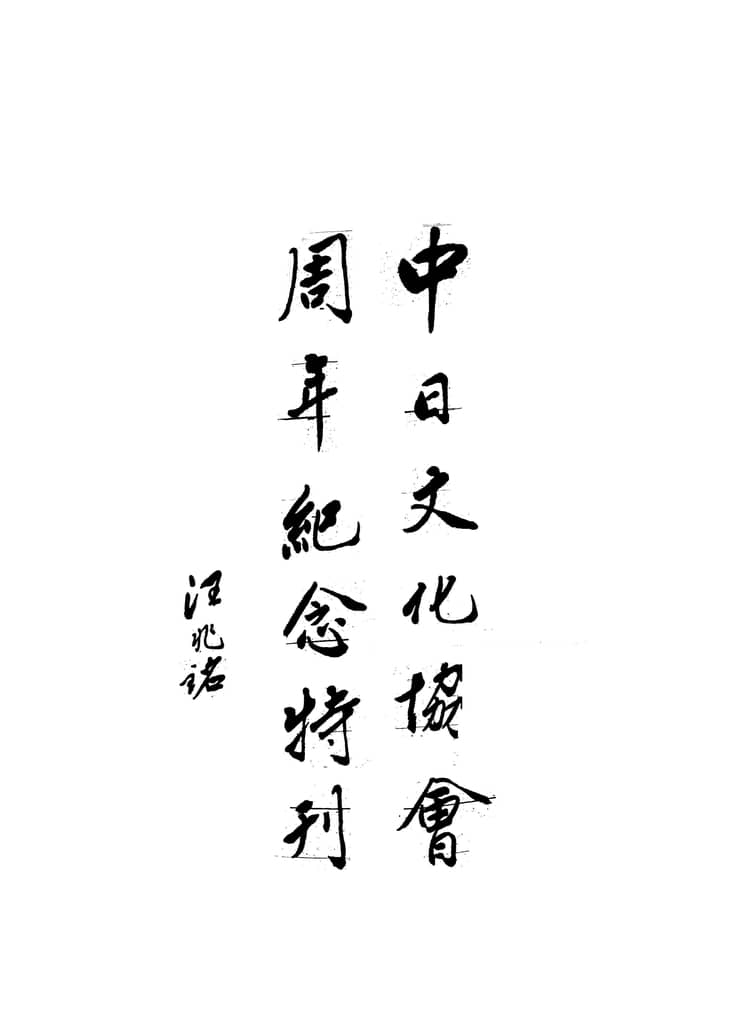 中日文化協會
周年紀念特刊
汪兆銘